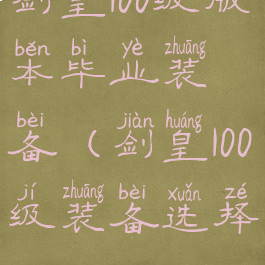 剑皇100级版
běn bì yè zhuāng
本毕业装
bèi jiàn huáng
备（剑皇100
jí zhuāng bèi xuǎn zé
级装备选择